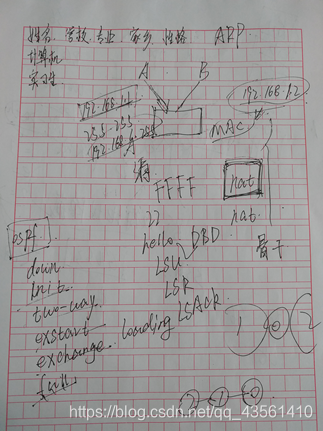 姓名、学校、专业、家乡、性格 ARP
计算机
实习生
A B
192.168.1.1
192.168.1.2
255.255
MAC
FFFF
nat
nat
ospf
hello DBD
骨干
down
LSU
Init
LSR
two-way
LSAck
exstart
loading
exchange
full
1 0 2
2 1 0
https://blog.csdn.net/qq_43561410